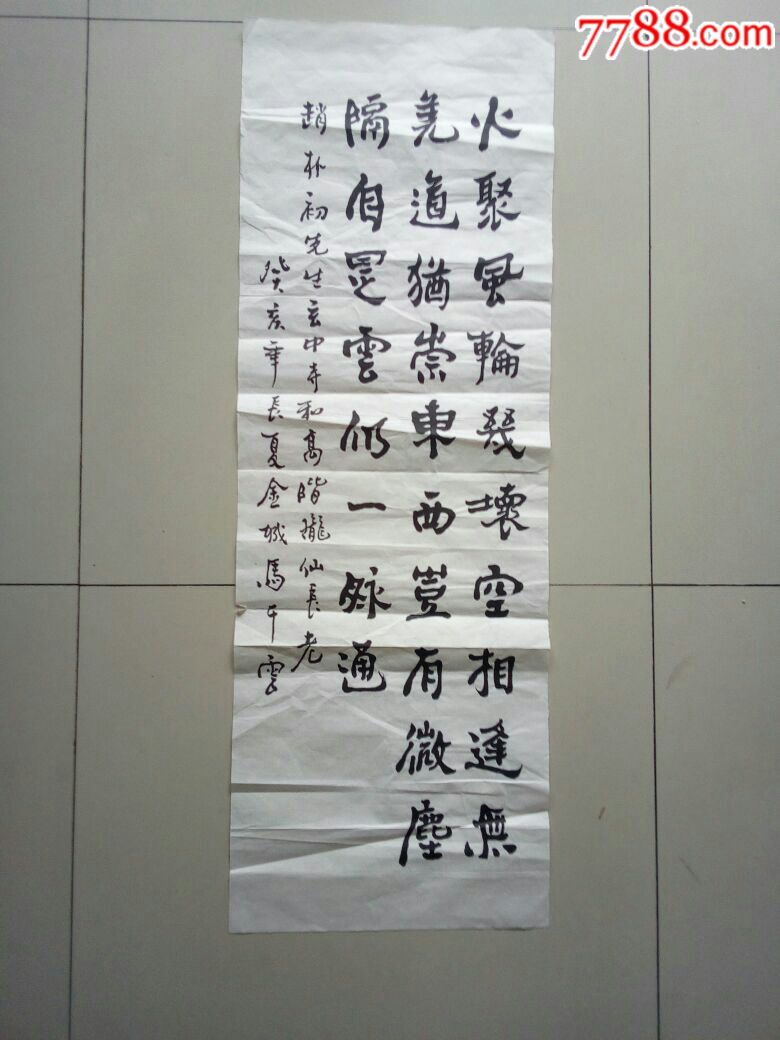 7788.com
火聚風輪幾壞空相逢無
恙道猶崇東西豈有微塵
隔自是雲仍一脉通
趙朴初先生玄中寺和高階瓏仙長老
癸亥年長夏金城馬干雲